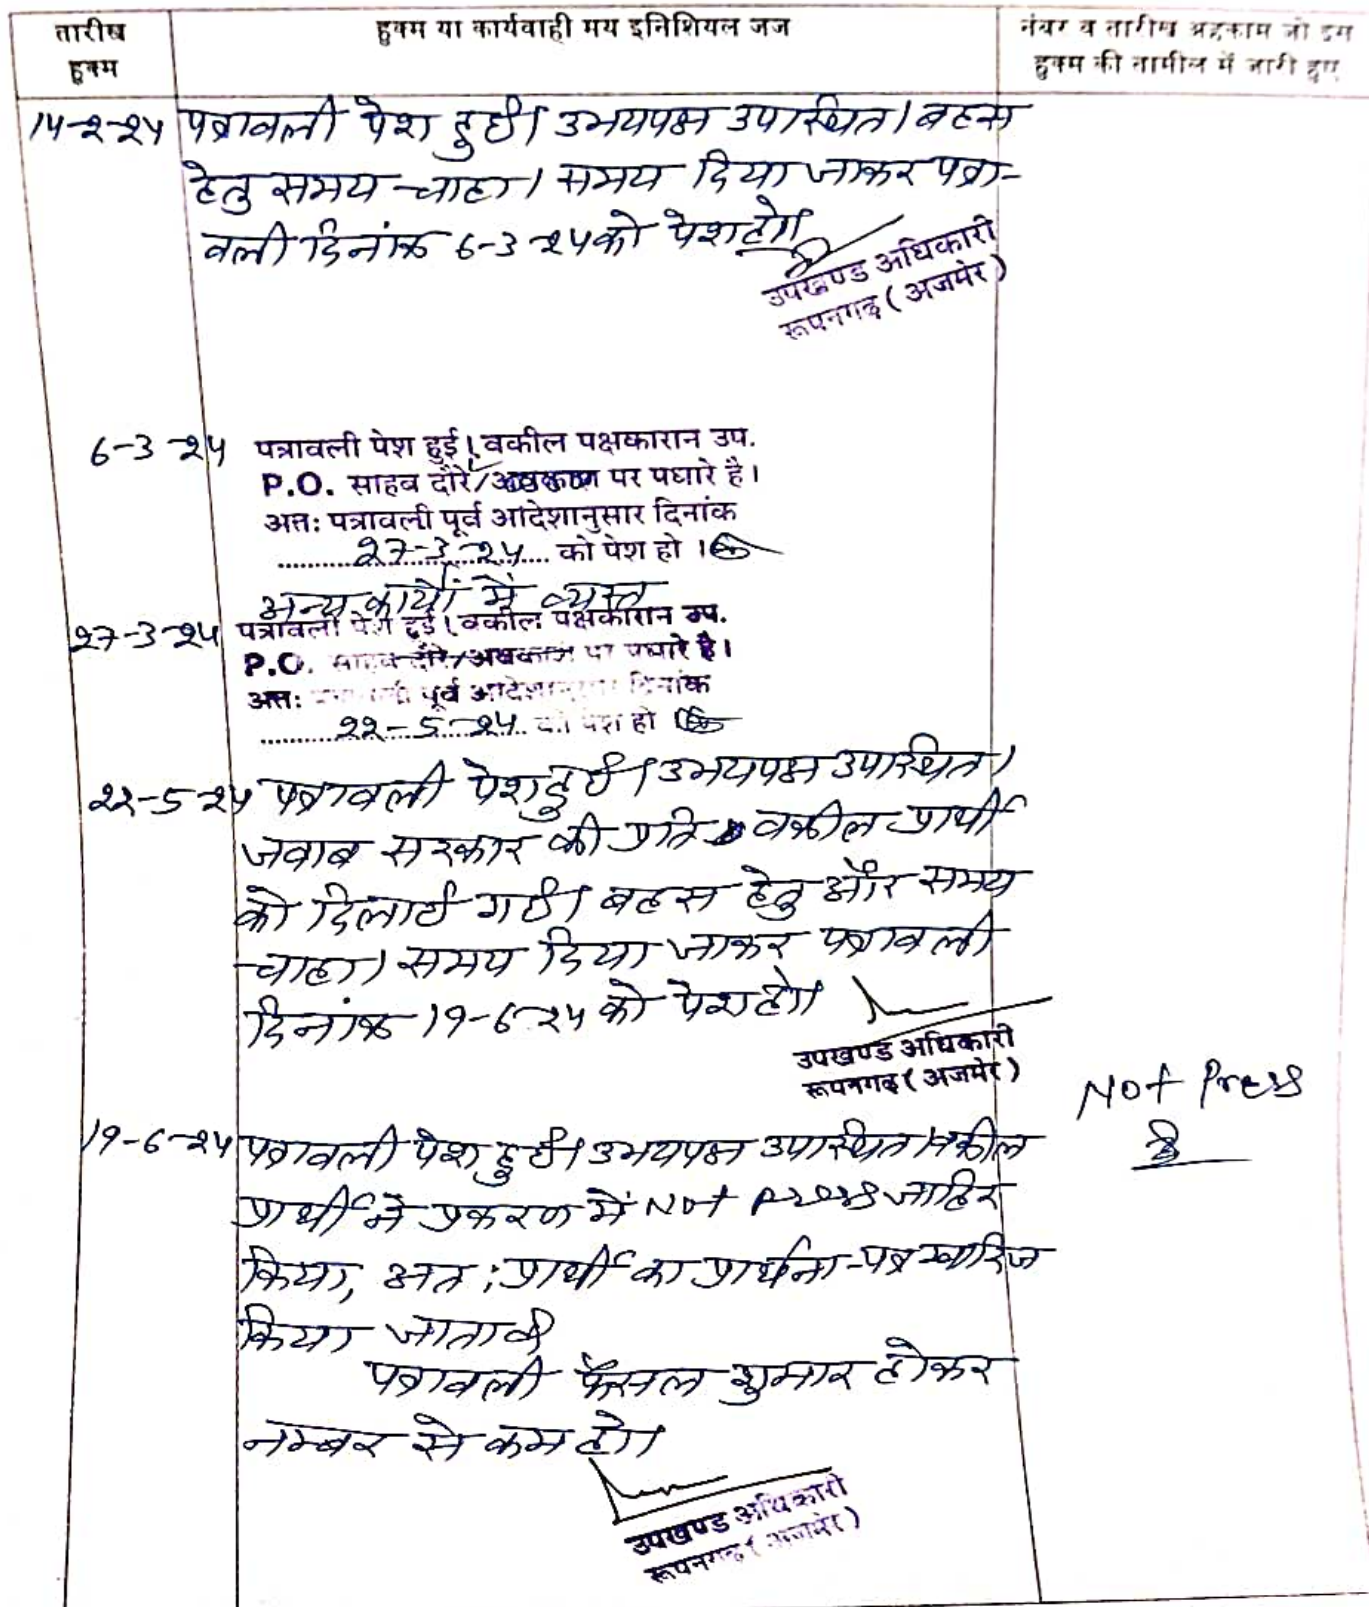 तारीख
हुक्म
हुक्म या कार्यवाही मय इनिशियल जज
नंबर व तारीख अहकाम जो इस
हुक्म की तामील में जारी हुए
14-2-24 पत्रावली पेश हुई। उभयपक्ष उपस्थित। बहस
हेतु समय चाहा। समय दिया जाकर पत्रा-
वली दिनांक 6-3-24 को पेश हो।
उपखण्ड अधिकारी
रूपनगढ़ (अजमेर)
6-3-24 पत्रावली पेश हुई। वकील पक्षकारान उप.
P.O. साहब दौरे/अवकाश पर पधारे है।
अतः पत्रावली पूर्व आदेशानुसार दिनांक
27-3-24 को पेश हो।
अन्य कार्यों में व्यस्त
27-3-24 पत्रावली पेश हुई। वकील पक्षकारान उप.
P.O. साहब दौरे/अवकाश पर पधारे है।
अतः पत्रावली पूर्व आदेशानुसार दिनांक
22-5-24 को पेश हो
22-5-24 पत्रावली पेश हुई। उभयपक्ष उपस्थित।
जवाब सरकार की प्रति वकील प्रार्थी
को दिलाई गई। बहस हेतु और समय
चाहा। समय दिया जाकर पत्रावली
दिनांक 19-6-24 को पेश हो।
उपखण्ड अधिकारी
रूपनगढ़ (अजमेर)
Not Press
19-6-24 पत्रावली पेश हुई। उभयपक्ष उपस्थित। वकील
प्रार्थी ने प्रकरण में Not Press जाहिर
किया, अत: प्रार्थी का प्रार्थना-पत्र खारिज
किया जाता है।
पत्रावली फैसल शुमार होकर
नम्बर से कम हो।
उपखण्ड अधिकारी
रूपनगढ़ (अजमेर)